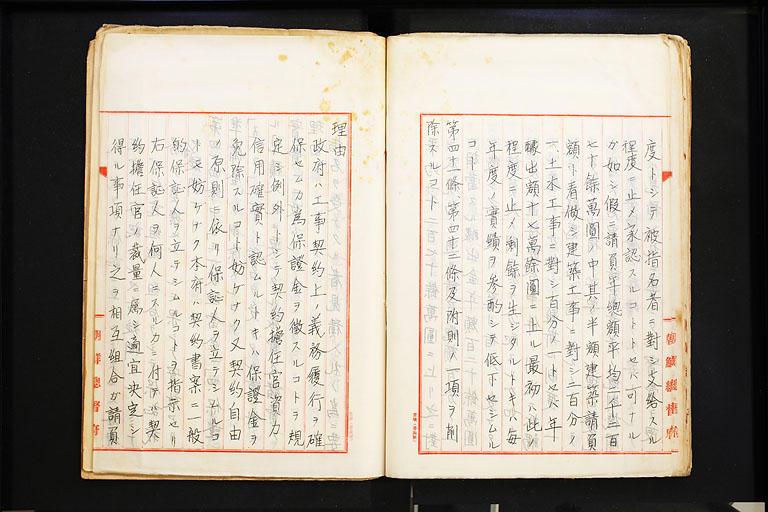 度トシテ被指名者ニ對シ支給スル
程度ニ止メ承認スルコトトセハ可ナル
カ如シ假ニ請負年總額平均二千二百
七十餘萬圓ノ中其ノ半額建築請負
額ト看做シ建築工事ニ對シ二百分ノ
一土木工事ニ對シ百分ノ一トセハ年
醵出額十七萬餘圓ニ上ル最初ハ此ノ
程度ニ止メ剩餘ヲ生シタルトキハ毎
年度ノ實績ヲ參酌シテ低下セシムル
コト
第四十一條第四十三條及附則ノ一項ヲ削
除スルコト
理由
政府ハ工事契約上ノ義務履行ヲ確
保セムカ爲保證金ヲ徴スルコトヲ規
定シ例外トシテ契約擔任官資力
信用確實ト認ムルトキハ保證金ヲ
免除スルコト妨ケナク又契約自由
ノ原則ニ依リ保證人ヲ立テシムルコ
トモ妨ケナク本府ハ契約書案ニ一般
的保證人ヲ立テシムルコトヲ指示セリ
右保證人ヲ何人ニスルカニ付テハ契
約擔任官ノ裁量ニ屬シ適宜決定シ
得ル事項ナリ之ヲ相互組合カ請負
朝鮮總督府
朝鮮總督府